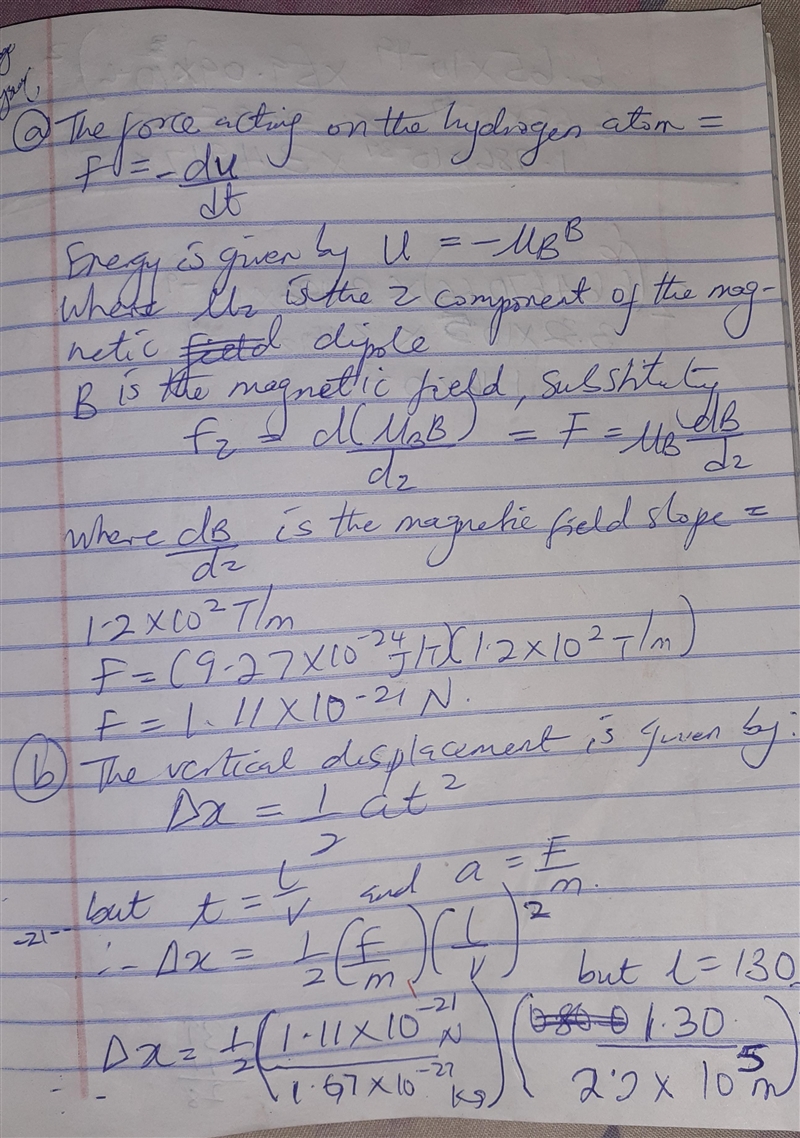 ⓐ The force acting on the hydrogen atom =
F = - du/dt
Energy is given by U = -μ_B B
Where μ_z is the z component of the mag-
netic dipole
B is the magnetic field, Substituty
f_z = d(μ_B B)/dz = F = μ_B dB/dz
where dB/dz is the magnetic field slope =
1.2 × 10² T/m
F = (9.27 × 10⁻²⁴ J/T)(1.2 × 10² T/m)
F = 1.11 × 10⁻²¹ N.
ⓑ The vertical displacement is given by:
Δx = 1/2 at²
but t = l/v and a = F/m.
-21--
∴ Δx = 1/2 (F/m)(l/v)²
but l = 130
Δx = 1/2 (1.11 × 10⁻²¹ N / 1.67 × 10⁻²⁷ kg) (1.30 / × 10⁵ m)